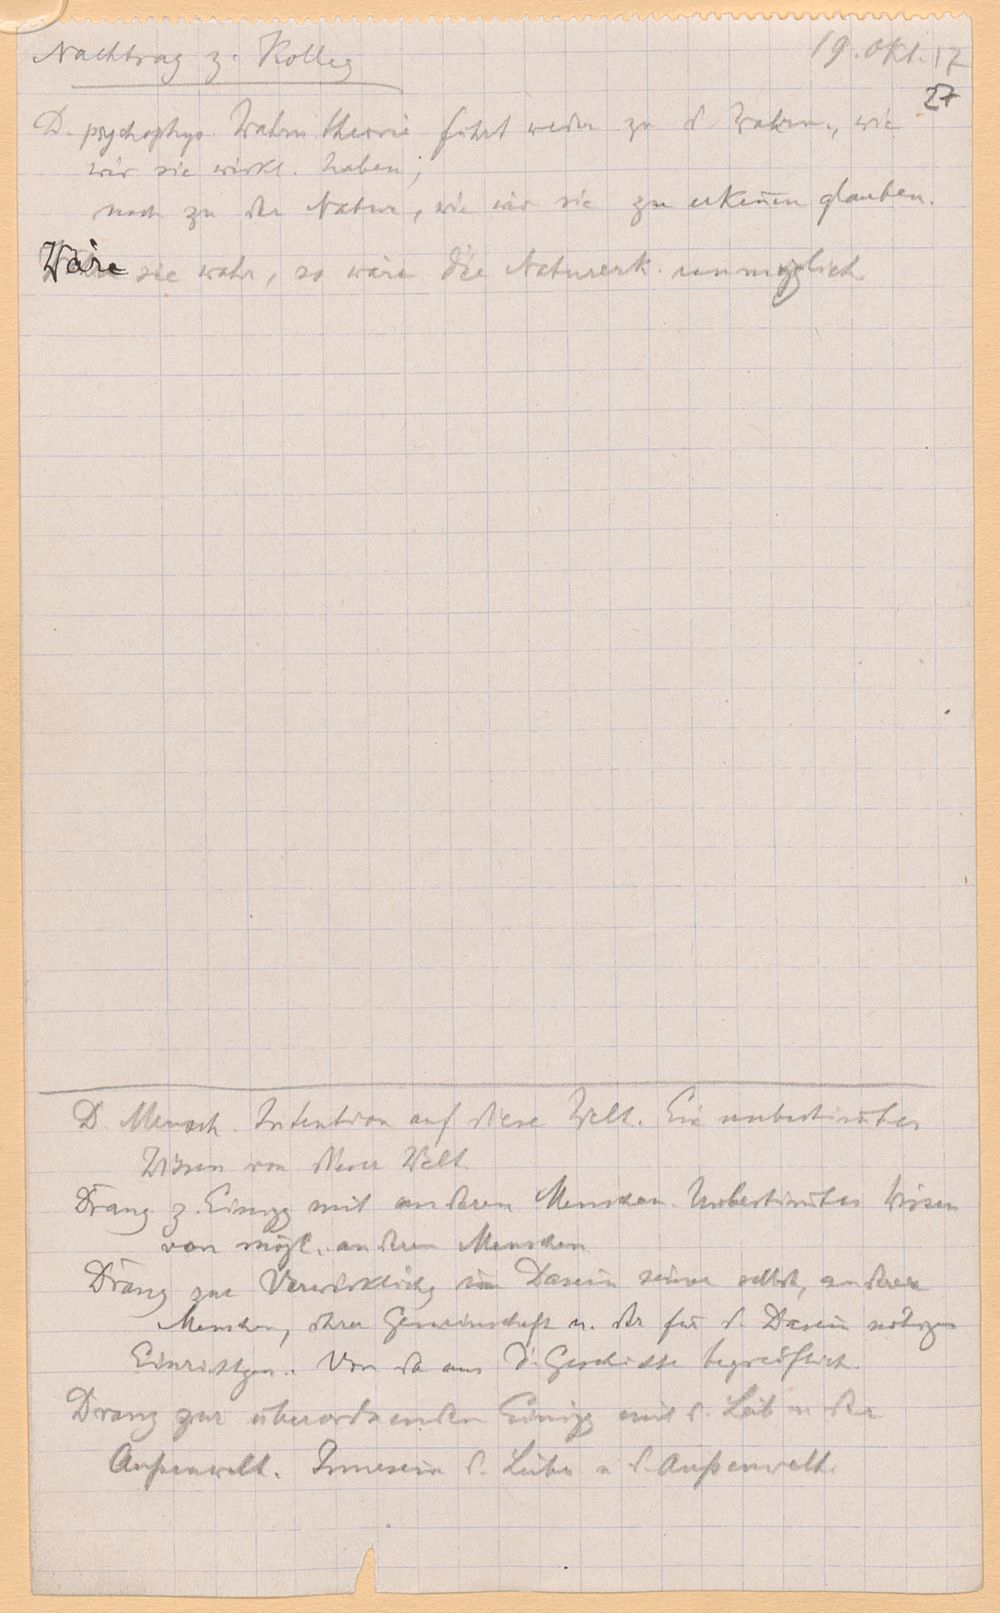 Nachtrag z. Kolleg
19. Okt. 17
27
D. psychophys. Wahrn.theorie führt weder zu d. Wahrn., wie
wir sie wirkl. haben,
noch zu der Natur, wie wir sie zu erkennen glauben.
Wäre sie wahr, so wäre die Naturerk. unmöglich
D. Mensch. Intention auf diese Welt. Ein unbestimmtes
Wissen von dieser Welt
Drang z. Einigg mit anderen Menschen. Unbestimmtes Wissen
von mögl. anderen Menschen
Drang zur Verwirklichg im Dasein seiner selbst, anderer
Menschen, ihrer Gemeinschaft u. der für d. Dasein nötigen
Einrichtgen. Von da aus d. Geschichte begreiflich.
Drang zur überordnenden Einigg mit d. Leib u. der
Außenwelt. Innesein d. Leibes u. d. Außenwelt.